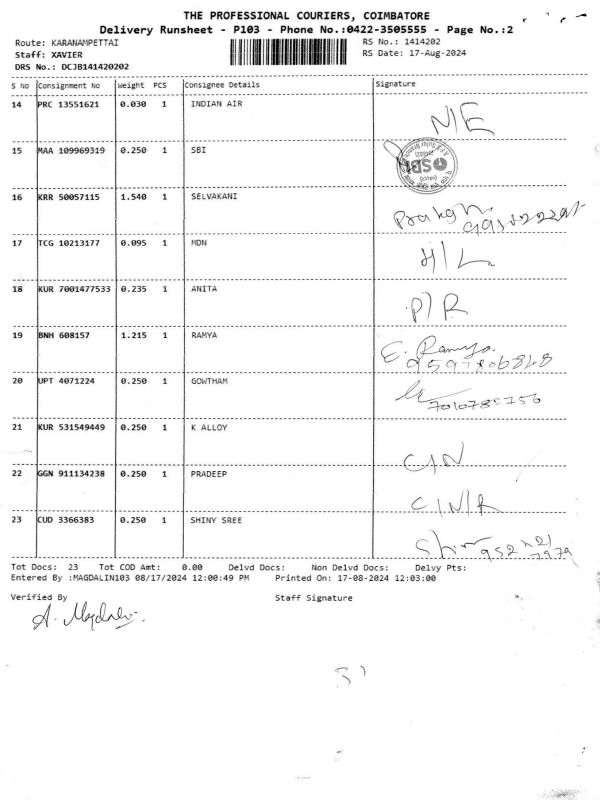 THE PROFESSIONAL COURIERS, COIMBATORE
Delivery Runsheet - P103 - Phone No.:0422-3505555 - Page No.:2
Route: KARANAMPETTAI RS No.: 1414202
Staff: XAVIER RS Date: 17-Aug-2024
DRS No.: DCJB141420202
S No Consignment No Weight PCS Consignee Details Signature
14 PRC 13551621 0.030 1 INDIAN AIR N/E
15 MAA 109969319 0.250 1 SBI SBI
16 KRR 50057115 1.540 1 SELVAKANI
17 TCG 10213177 0.095 1 MDN H/L
18 KUR 7001477533 0.235 1 ANITA P/R
19 BNH 608157 1.215 1 RAMYA E. Ramya.
20 UPT 4071224 0.250 1 GOWTHAM
21 KUR 531549449 0.250 1 K ALLOY C/N
22 GGN 911134238 0.250 1 PRADEEP C/N/R
23 CUD 3366383 0.250 1 SHINY SREE
Tot Docs: 23 Tot COD Amt: 0.00 Delvd Docs: Non Delvd Docs: Delvy Pts:
Entered By :MAGDALIN103 08/17/2024 12:00:49 PM Printed On: 17-08-2024 12:03:00
Verified By Staff Signature